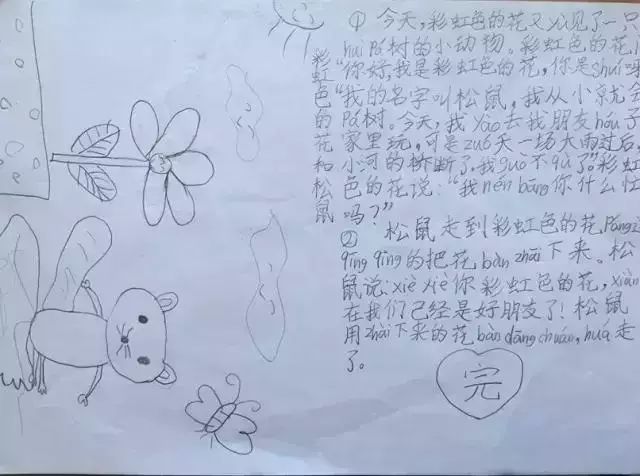 彩虹色的花和松鼠
① 今天,彩虹色的花又yù见了一只
huì pá树的小动物。彩虹色的花
"你好,我是彩虹色的花,你是shuí
"我的名字叫松鼠,我从小就会
pá树。今天,我yào去找朋友hóu子
家里玩,可是zuó天一场大雨过后,
小河的桥断了,我guò不qù了。"彩虹
色的花说:"我nén bāng你什么忙
吗?"
② 松鼠走到彩虹色的花
qīng qīng的把花bàn zhāi下来。松
鼠说:xiè xiè你彩虹色的花,xiàn
在我们已经是好朋友了!松鼠
用zhāi下来的花bàn dāng chuán,huá走
了。
完